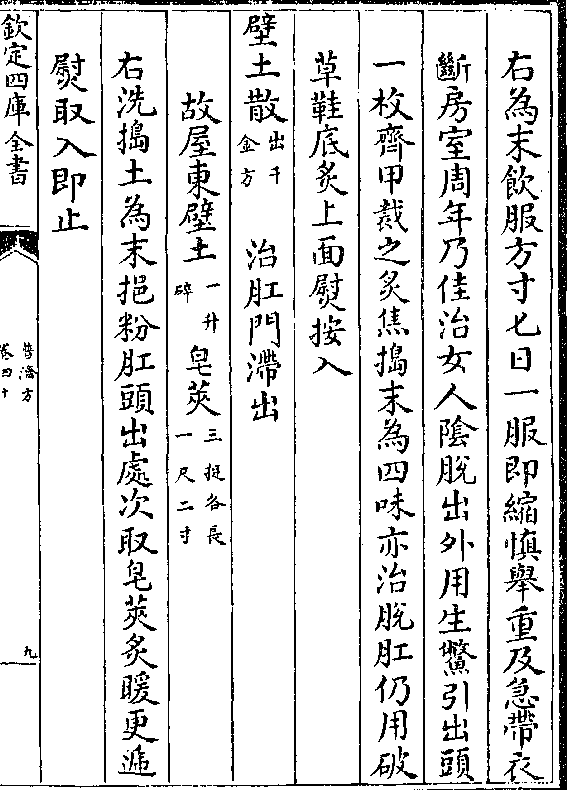 右為末飲服方寸匕日一服即縮慎舉重及急帶衣
斷房室周年乃佳治女人陰脫出外用生鱉引出頭
一枚齊甲裁之炙焦搗末為四味亦治脫肛仍用破
草鞋底炙上面熨按入
壁土散出千金方 治肛門滯出
故屋東壁土一升碎 皂莢三挺各長一尺二寸
右洗搗土為末挹粉肛頭出處次取皂莢炙暖更遞
熨取入即止
欽定四庫全書
普濟方
卷四十
九